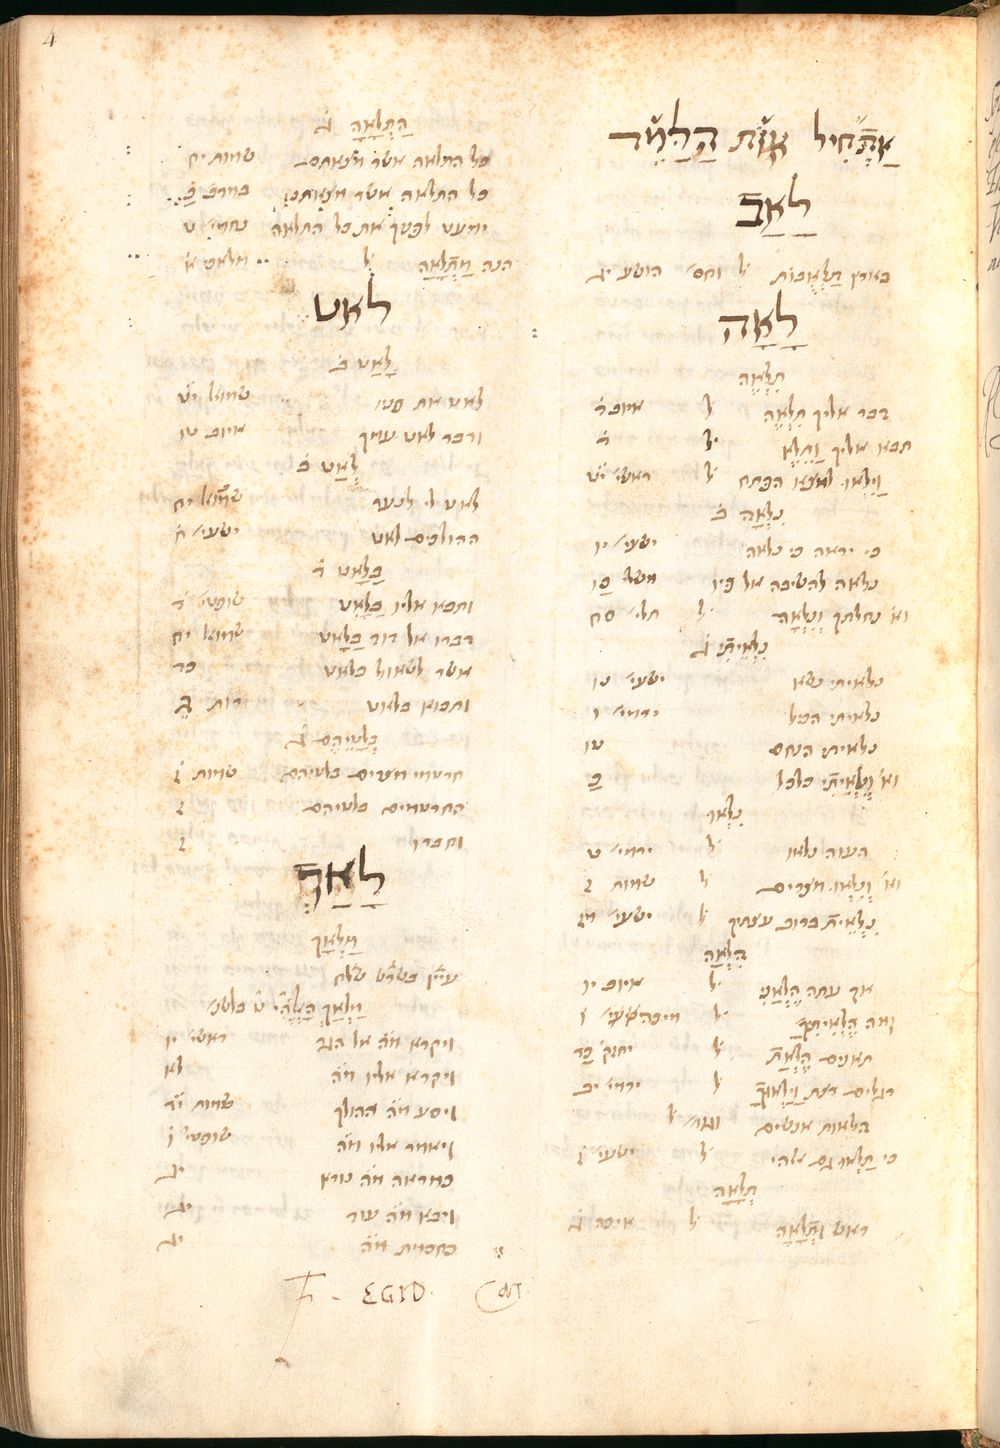 4
אַתְחִיל אוֹת הַלָּמֶד
לָאַב
בארץ תַּלְאֻבוֹת ל׳ וחס׳ הושע יג
לָאָה
תִּלְאֶה
דבר אליך תִּלְאֶה ל׳ איוב ד
תבא אליך וַתֵּלֶא ל׳ ד
וַיִּלְאוּ למצא הפתח ל׳ ראשי׳ יט
נִלְאָה ב
כי יראה כי נלאה ישעי׳ יו
נלאה להשיבה אל פיו משלי כו
וא׳ נחלתך וְנִלְאָה ל׳ תלי׳ סח
נִלְאֵיתִי ג
נלאיתי נשא ישעי׳
נלאיתי הכיל ירמי׳ ו
נלאיתי הנחם טו
וא׳ וְנִלְאֵיתִי כלכל כ
נִלְאוּ
העוה נלאו ל׳ ירמי׳ ט
וא׳ וְנִלְאוּ מצרים ל׳ שמות ז
נִלְאֵית ברוב עצתיך ל׳ ישעי׳ מז
הֶלְאָה
אך עתה הֶלְאָנִי ל׳ איוב יו
ומה הֶלְאֵיתִיךָ ל׳ מיכה ו
תאנים הֶלְאָת ל׳ יחזק׳ כד
רגלים רצת וַיַּלְאוּךָ ל׳ ירמי׳ יב
הלאות אנשים ל׳
כי תַלְאוּ גם אלהי ל׳ ישעי׳ ז
תְּלָאָה
ראש וּתְלָאָה ל׳ איכה ג
הַתְּלָאָה ג
כל התלאה אשר מצאתם שמות יח
כל התלאה אשר מצאתנו במדבר כ
ימעט לפניך את כל התלאה נחמי׳ ט
הנה מַתְּלָאָה ל׳ מלאכי א
לאט
לָאַט ב
לאט את פניו שמואל יט
ודבר לאט עמך איוב טו
לְאַט ב
לאט לי לנער שמואל יח
ההולכים לאט ישעי׳ ח
בַּלָּאט ד
ותבא אליו בַּלָּאט שופטי׳ ד
דברו אל דוד בַּלָּט שמואל יח
אשר לשאול בלאט כד
ותבוא בלאט רות ג
בְּלָטֵיהֶם ג
חרטמי מצרים בלטיהם שמות ז
החרטומים בלטיהם
וחברו
לָאַךְ
מַלְאָךְ
עיין בשרש שלח
מַלְאַךְ הָאֱלֹהִים
ויקרא מ״ה אל הגר ראשי׳
ויקרא אליו מ״ה לא
ויסע מ״ה ההולך שמות יד
ויאמר אליו מ״ה שופטי׳ ו
כמראה מ״ה נורא יג
ויבא מ״ה עוד יג